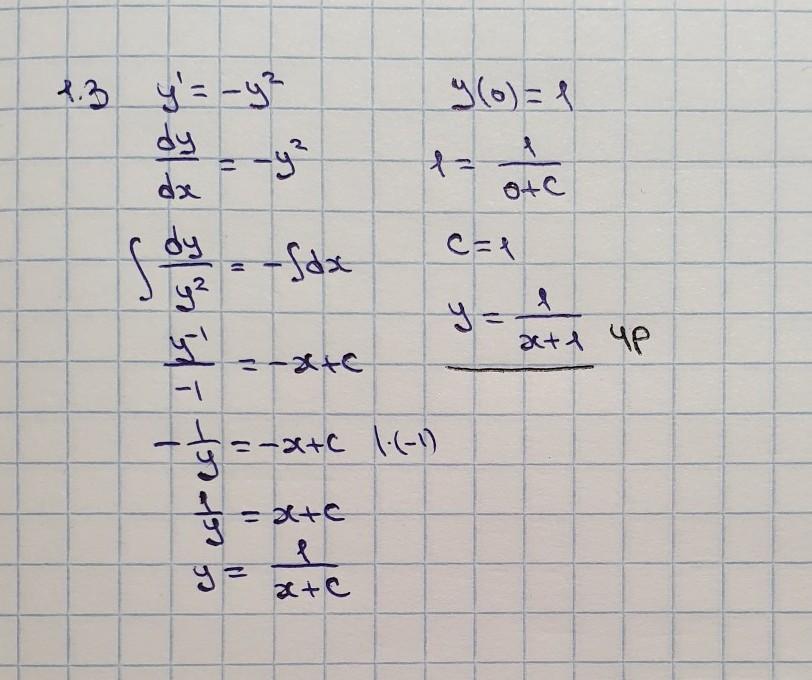 1.3 y' = -y²
dy/dx = -y²
∫ dy/y² = -∫dx
y⁻¹/-1 = -x+C
-1/y = -x+C |·(-1)
1/y = x+C
y = 1/(x+C)
y(0) = 1
1 = 1/(0+C)
C = 1
y = 1/(x+1) ЧР